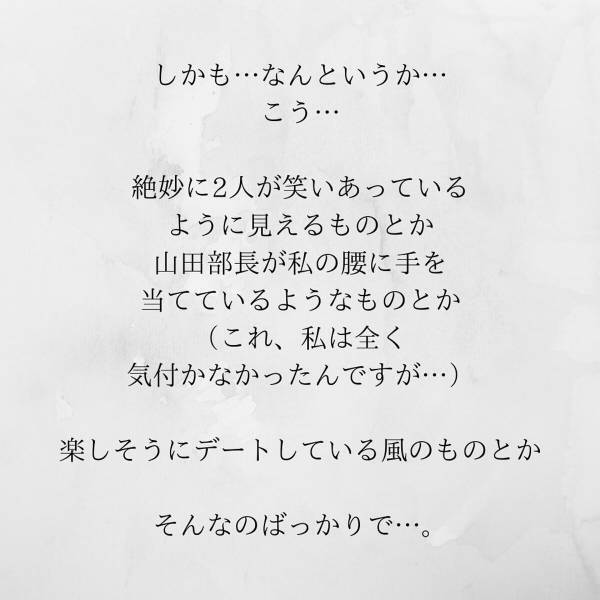 しかも…なんというか…
こう…
絶妙に2人が笑いあっている
ように見えるものとか
山田部長が私の腰に手を
当てているようなものとか
（これ、私は全く
気付かなかったんですが…）
楽しそうにデートしている風のものとか
そんなのばっかりで…。